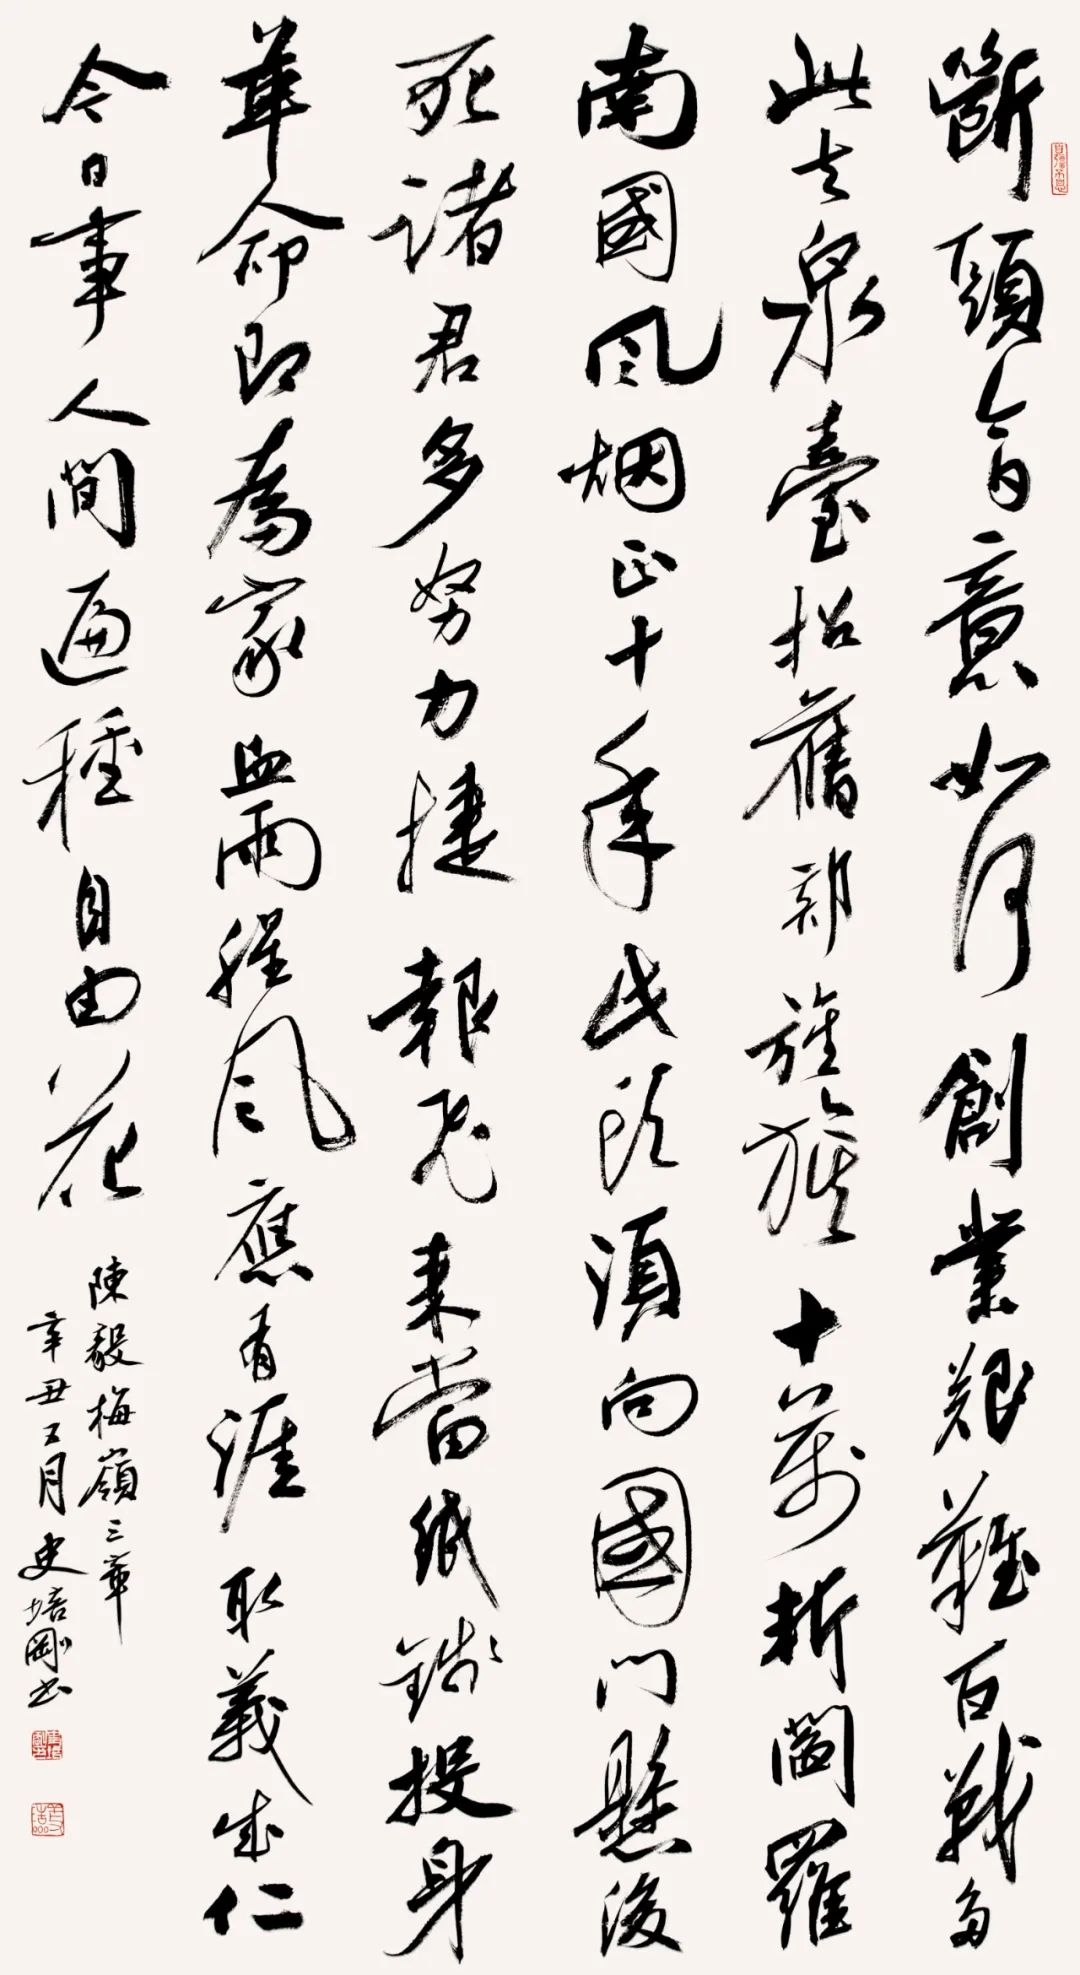 斷頭今日意如何創業艱難百戰多
此去泉臺招舊部旌旗十萬斬閻羅
南國風烟正十年此頭須向國門懸後
死諸君多努力捷報飛來當紙錢投身
革命即為家血雨腥風應有涯取義成仁
今日事人間遍種自由花
陳毅梅嶺三章
辛丑五月史培剛書